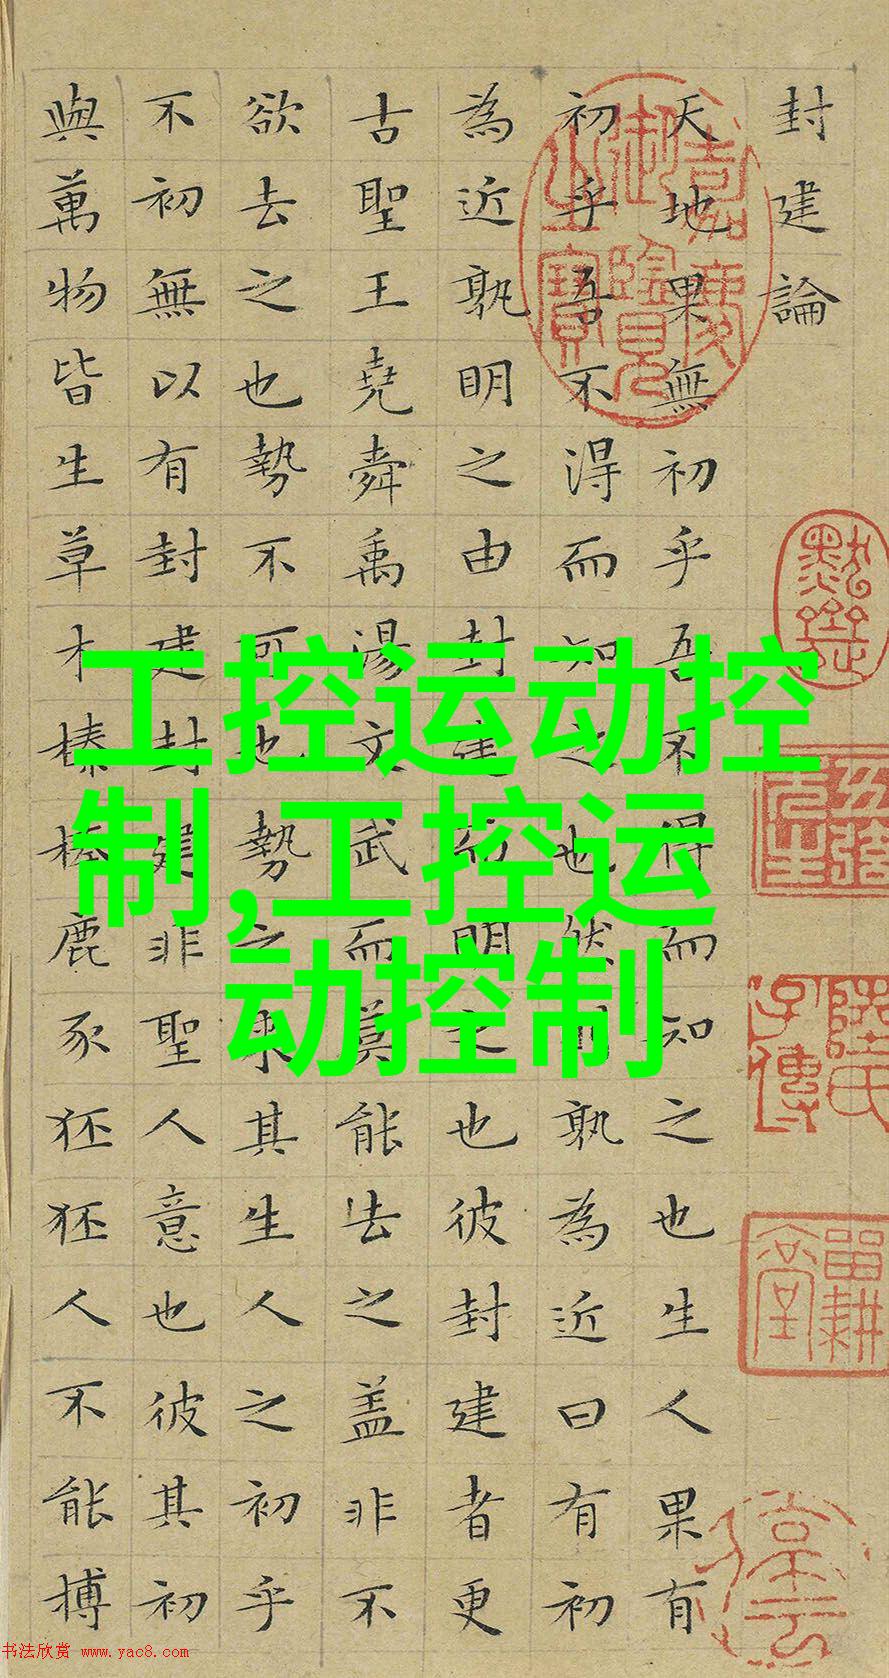 封建論
天地果無初乎吾不得而知之也生人果有
初乎吾不得而知之也然則孰為近曰有初
為近孰明之由封建而明之也彼封建者更
古聖王堯舜禹湯文武而莫能去之盖非不
欲去之也勢不可也勢之來其生人之初乎
不初無以有封建封建非聖人意也彼其初
與萬物皆生草木榛榛鹿豕狉狉人不能搏
嘉慶御覽之寶
工控运动控
制,工控运
动控制
书法欣赏 www.yac8.com